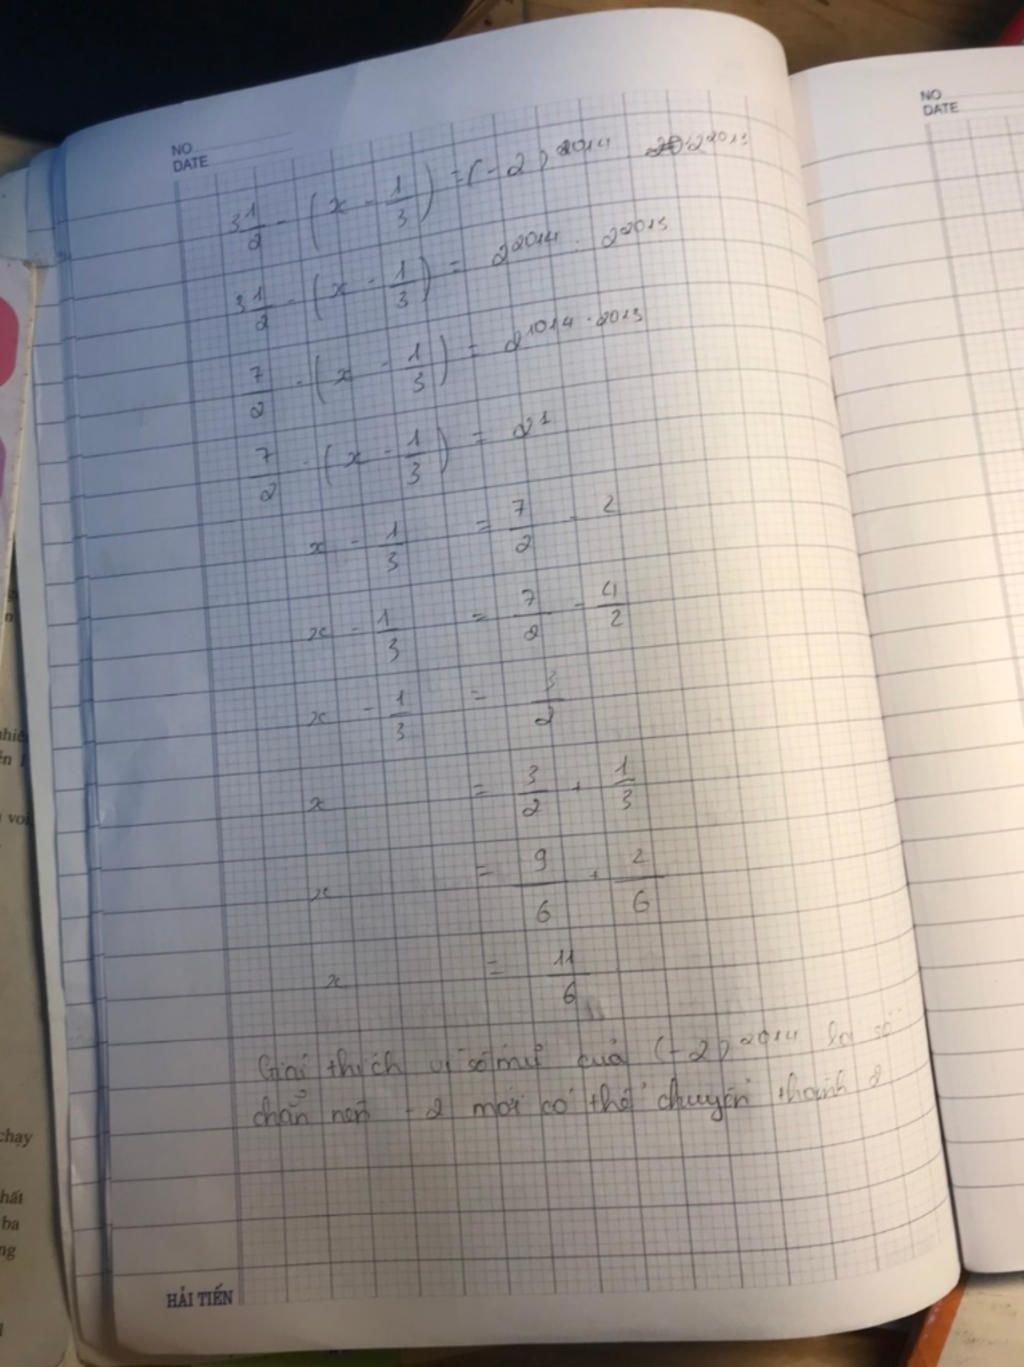 NO
DATE
NO
DATE
3 1/2 - (x - 1/3) = (-2)^2014 : 2^2013
3 1/2 - (x - 1/3) = 2^2014 : 2^2013
7/2 - (x - 1/3) = 2^1014 - 2013
7/2 - (x - 1/3) = 2^1
x - 1/3 = 7/2 - 2
x - 1/3 = 7/2 - 4/2
x - 1/3 = 3/2
x = 3/2 + 1/3
x = 9/6 + 2/6
x = 11/6
Giải thích vì số mũ của (-2)^2014 là số
chẵn nên -2 mới có thể chuyển thành 2
HẢI TIẾN
chạy
ba